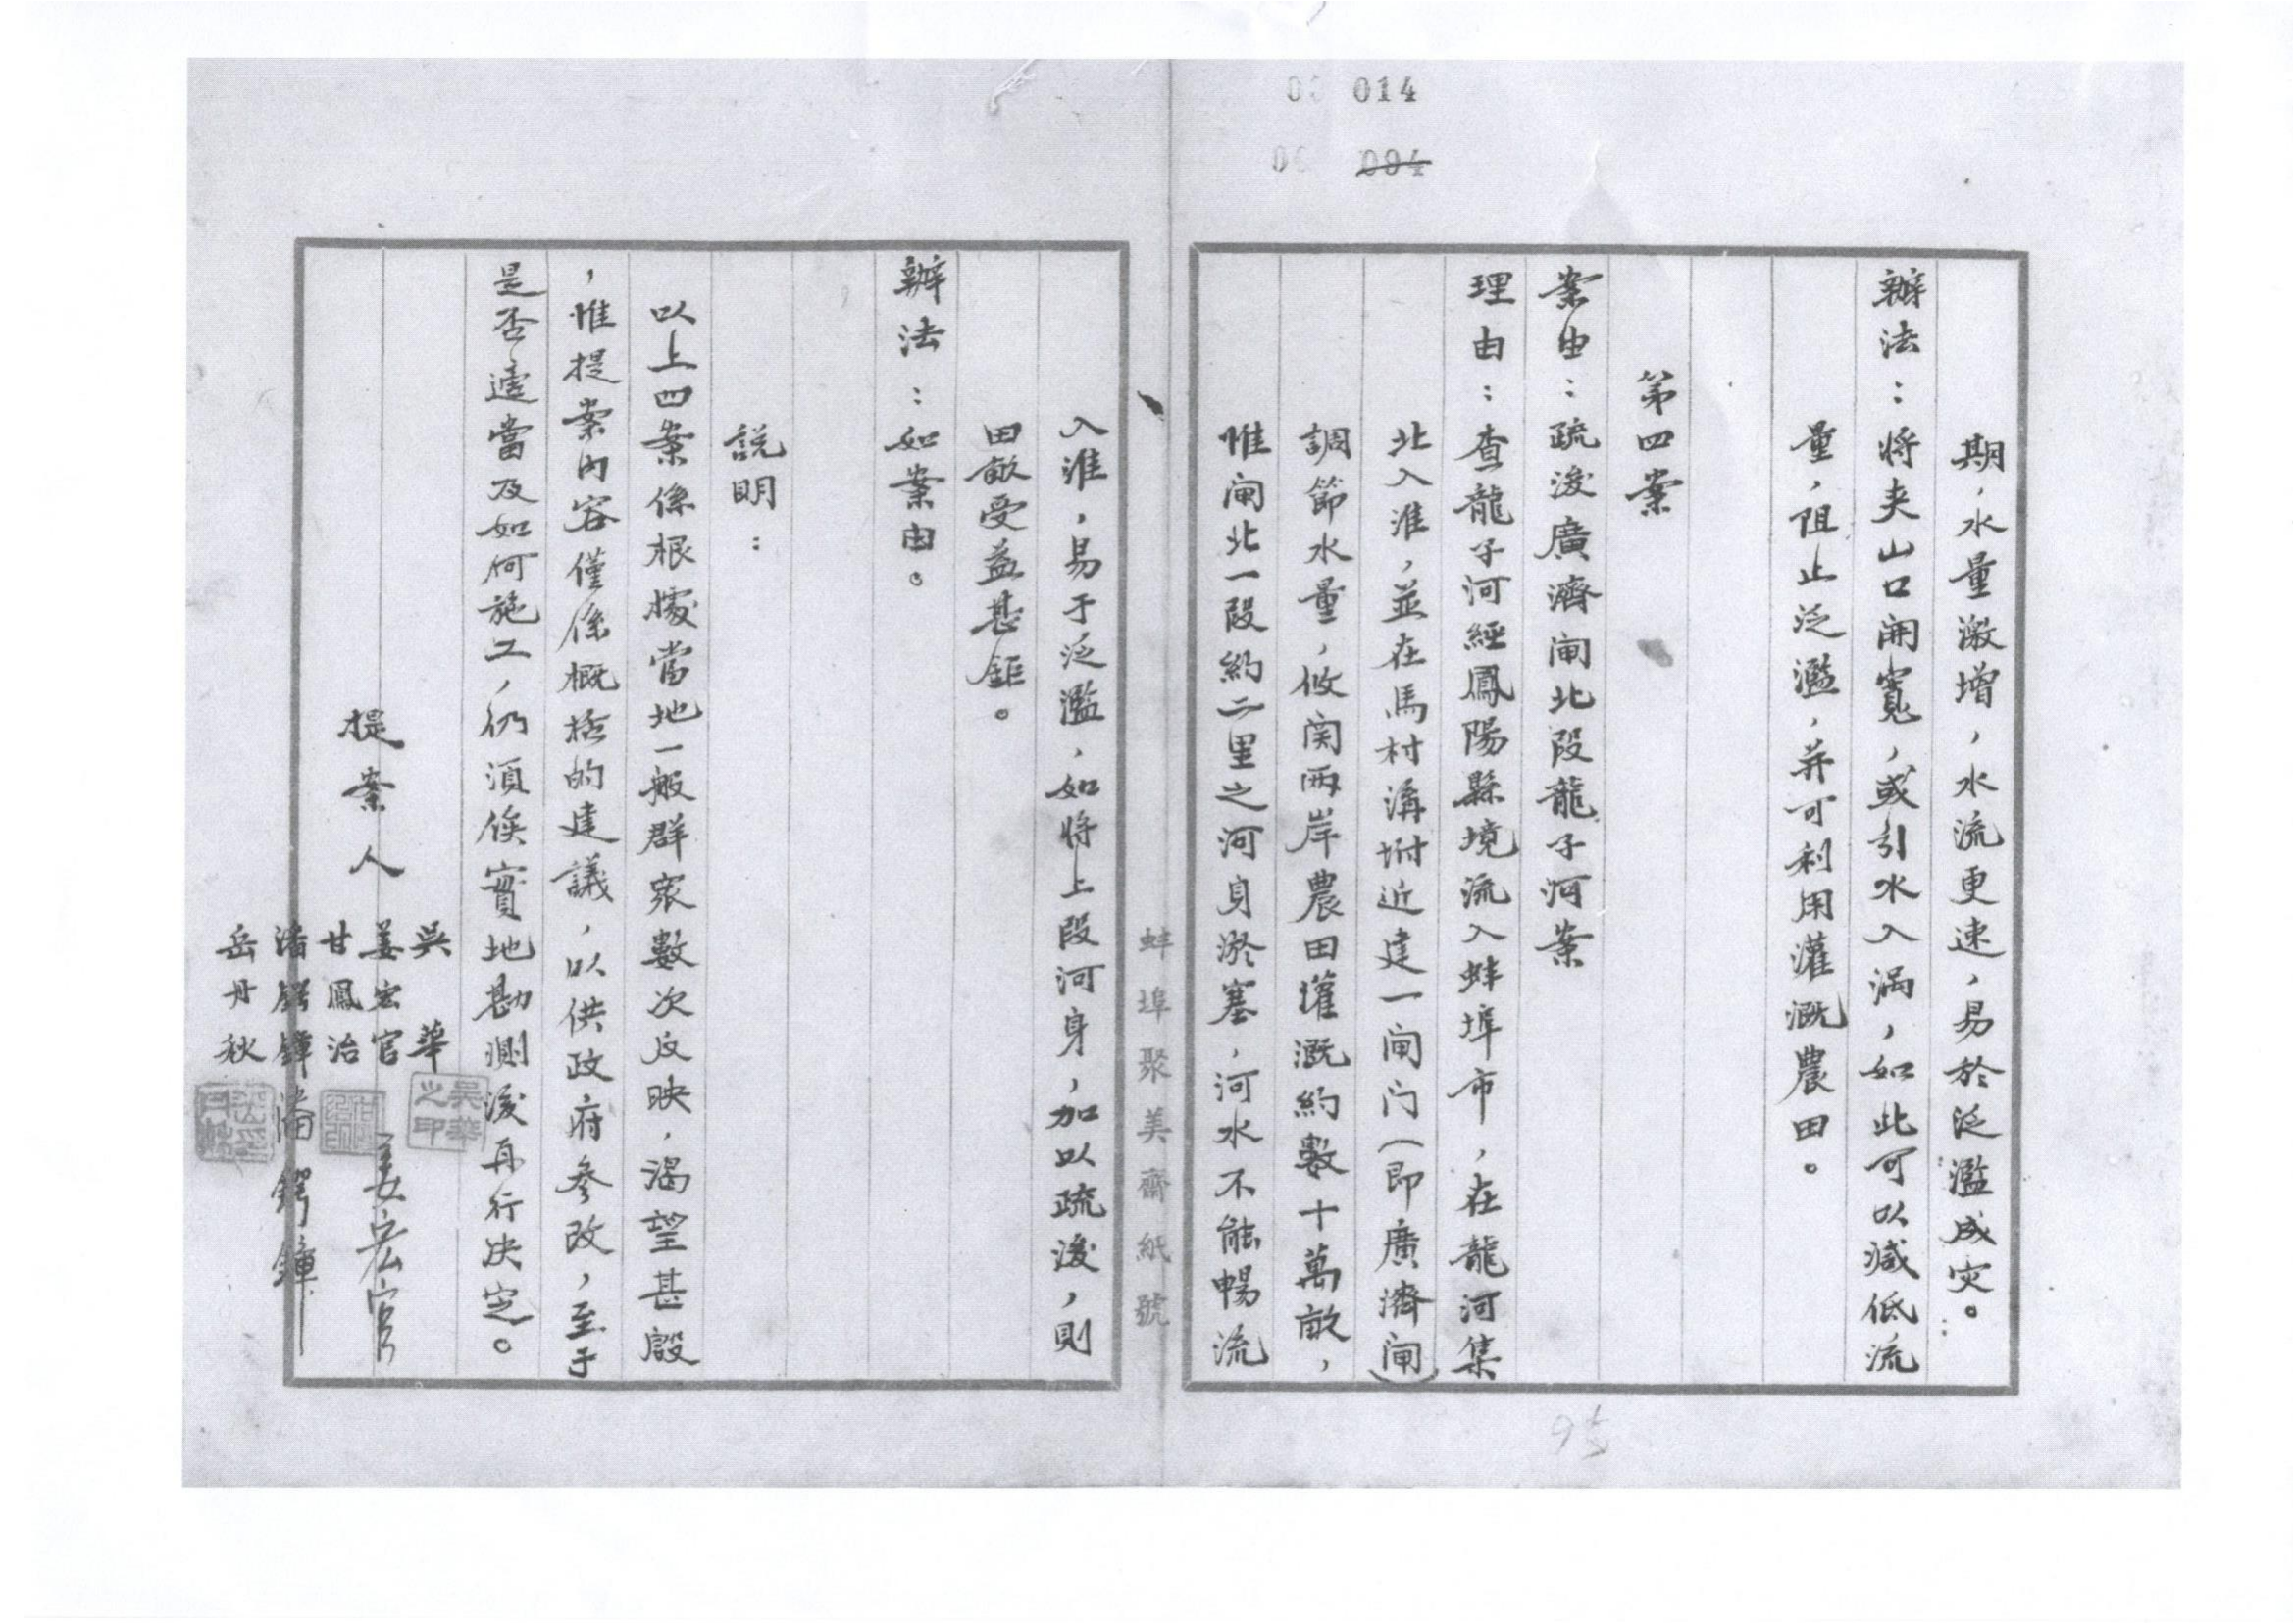 014
094
期，水量激增，水流更速，易於泛濫成灾。
辦法：將夾山口開寬，或引水入渦，如此可以減低流
量，阻止泛濫，并可利用灌溉農田。
第四案
案由：疏浚廣濟閘北段龍子河案
理由：查龍子河經鳳陽縣境流入蚌埠市，在龍河集
北入淮，並在馬村溝坿近建一閘门（即廣濟閘）
調節水量，攸関兩岸農田灌溉約數十萬畝，
惟閘北一段約二里之河身淤塞，河水不能暢流
蚌埠聚美齋紙號
入淮，易于泛濫，如將上段河身，加以疏浚，則
田畝受益甚鉅。
辦法：如案由。
説明：
以上四案係根據當地一般群眾數次反映，渴望甚殷
，惟提案內容僅係概括的建議，以供政府參改，至于
是否適當及如何施工，仍須俟實地勘測後再行決定。
提案人
吳華
姜宏官
甘鳳治
潘鍔鐘
岳丹秋
吳華之印
姜宏官
潘鍔鐘
95